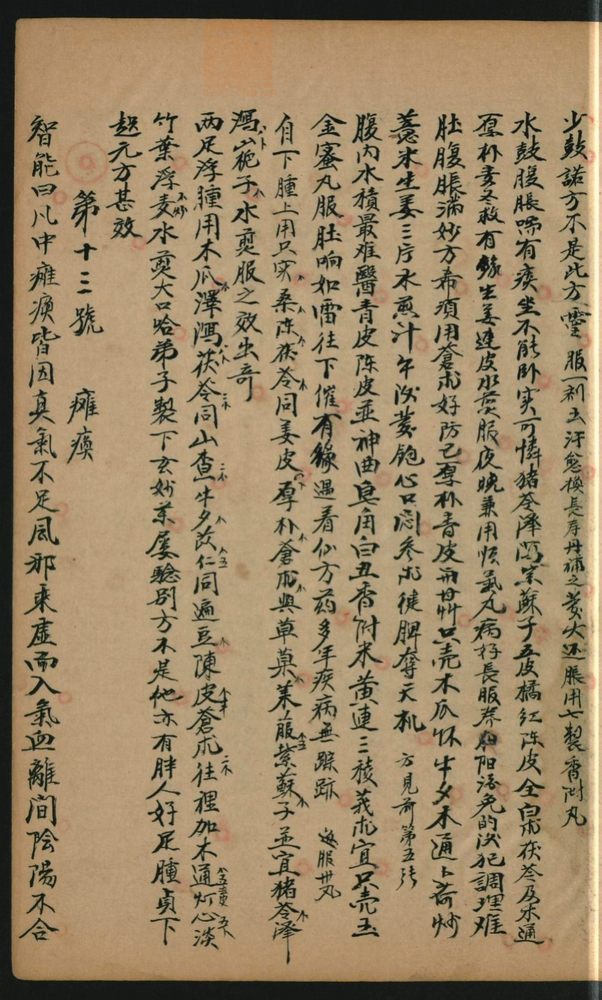 少鼓諾方不是此方靈 服一剂去汗愈後長存丹補之黄大还脹用七製香附丸
水鼓腹脹喘有痰坐不能卧实可憐猪苓澤瀉宗蘇子五皮橘红陈皮全白朮茯苓及木通
厚朴麦冬救有緣生姜連皮水煎服夜晚兼用順氣丸病好長服养阳活免的决犯調理难
肚腹脹满妙方希須用蒼朮好防己厚朴青皮甘艸只壳木瓜怀牛夕木通卜荷炒
薏米生姜三片水煎汁午後养饱心口闷参朮健脾奪天机 方見前第五张
腹内水積最难醫青皮陈皮並神曲皂角白丑香附米黄連三稜莪朮宜只壳玉
金蜜丸服肚响如雷往下催有緣遇着仙方药多年疾病無踪跡 每服廿丸
自下腫上用只实桑陈茯苓同姜皮厚朴蒼朮與草菓莱菔紫蘇子並宜猪苓泽
瀉山栀子水煎服之效出奇
两足浮腫用木瓜澤瀉茯苓同山查牛夕苡仁同遍豆陳皮蒼朮往裡加木通灯心淡
竹葉浮麦水煎大口哈弟子製下玄妙茶屡驗别方不是他亦有胖人好足腫貞下
起元方甚效
第十三號 癱瘓
智能曰凡中癱瘓皆因真氣不足風邪来虚而入氣血離间陰陽不合